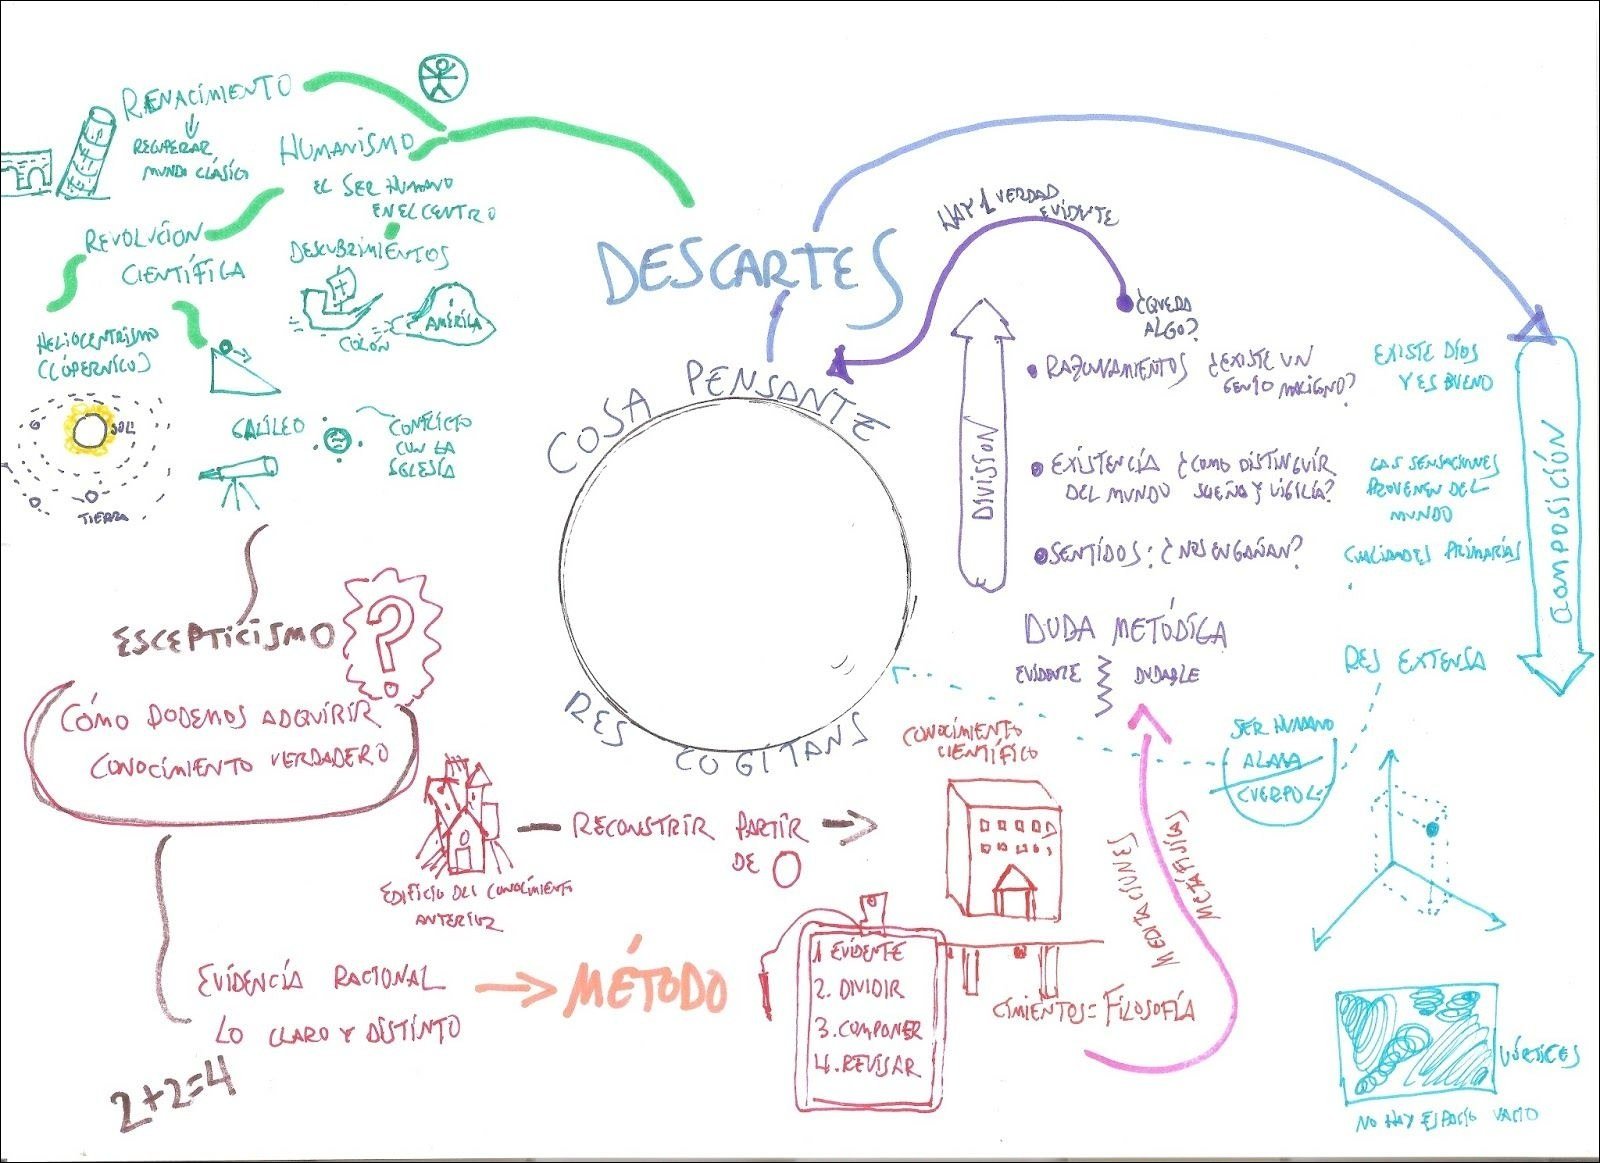 RENACIMIENTO
RECUPERAR
MUNDO CLÁSICO
HUMANISMO
EL SER HUMANO
EN EL CENTRO
REVOLUCION
CIENTÍFICA
DESCUBRIMIENTOS
AMÉRICA
COLÓN
HELIOCENTRISMO
(COPÉRNICO)
SOL
TIERRA
GALILEO
CONFLICTO
CON LA
IGLESIA
ESCEPTICISMO
?
CÓMO PODEMOS ADQUIRIR
CONOCIMIENTO VERDADERO
EDIFICIO DEL CONOCIMIENTO
ANTERIOR
RECONSTRIR PARTIR
DE 0
CONOCIMIENTO
CIENTÍFICO
EVIDENCIA RACIONAL
LO CLARO Y DISTINTO
2+2=4
MÉTODO
1 EVIDENTE
2. DIVIDIR
3. COMPONER
4. REVISAR
CIMIENTOS = FILOSOFÍA
MEDITACIONES
METAFÍSICAS
DESCARTES
COSA PENSANTE
RES COGITANS
HAY 1 VERDAD
EVIDENTE
¿QUEDA
ALGO?
DIVISSON
• RAZONAMIENTOS ¿EXISTE UN
GENIO MALIGNO?
EXISTE DIOS
Y ES BUENO
• EXISTENCIA ¿COMO DISTINGUIR
DEL MUNDO SUEÑO Y VIGILIA?
LAS SENSACIONES
PROVENEN DEL
MUNDO
• SENTIDOS: ¿NOS ENGAÑAN?
CUALIDADES PRIMARIAS
COMPOSICIÓN
DUDA METÓDICA
EVIDENTE DUDABLE
RES EXTENSA
SER HUMANO
ALMA
CUERPO
VÓRTICES
NO HAY ESPACIO VACIO